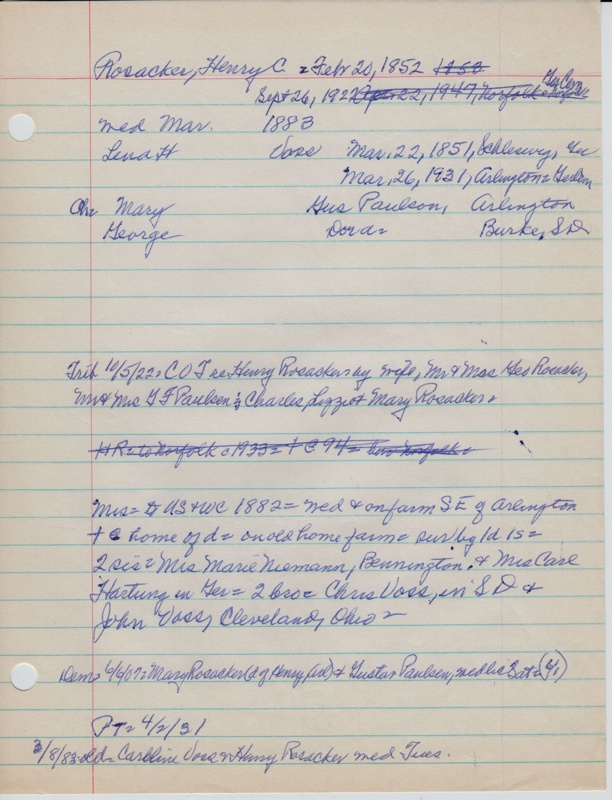 Rosacker, Henry C. = Feb 20, 1852 1858
Ger Cem
Sept 26, 1922 Apr 22, 1947, Norfolk = Norfolk
med Mar. 1883
Lena H Voss Mar. 22, 1851, Schleswig, Ger
Mar. 26, 1931, Arlington = German
Ch = Mary Gus Paulson, Arlington
George Dora = Burke, S D
Trib 10/5/22 = C O T = Henry Rosacker by wife, Mr & Mrs Geo Rosacker,
Mr & Mrs G F Paulsen & Charles, Lizzie & Mary Rosacker =
H R = to Norfolk c 1933 = + C 94 = Norfolk =
Mrs = to US + WC 1882 = med & on farm S E of Arlington
+ @ home of d = on old home farm = sur by 1d 1s =
2 sis = Mrs Marie Niemann, Bennington & Mrs Carl
Hartung in Ger = 2 bro = Chris Voss, in S D &
John Voss, Cleveland, Ohio =
Dem = 4/6/07 = Mary Rosacker (d of Henry Arl) & Gustav Paulsen, med lic Sat = (4/1)
PT = 4/2/31
3/8/83 = Caroline Voss & Harry Rosacker med Tues.